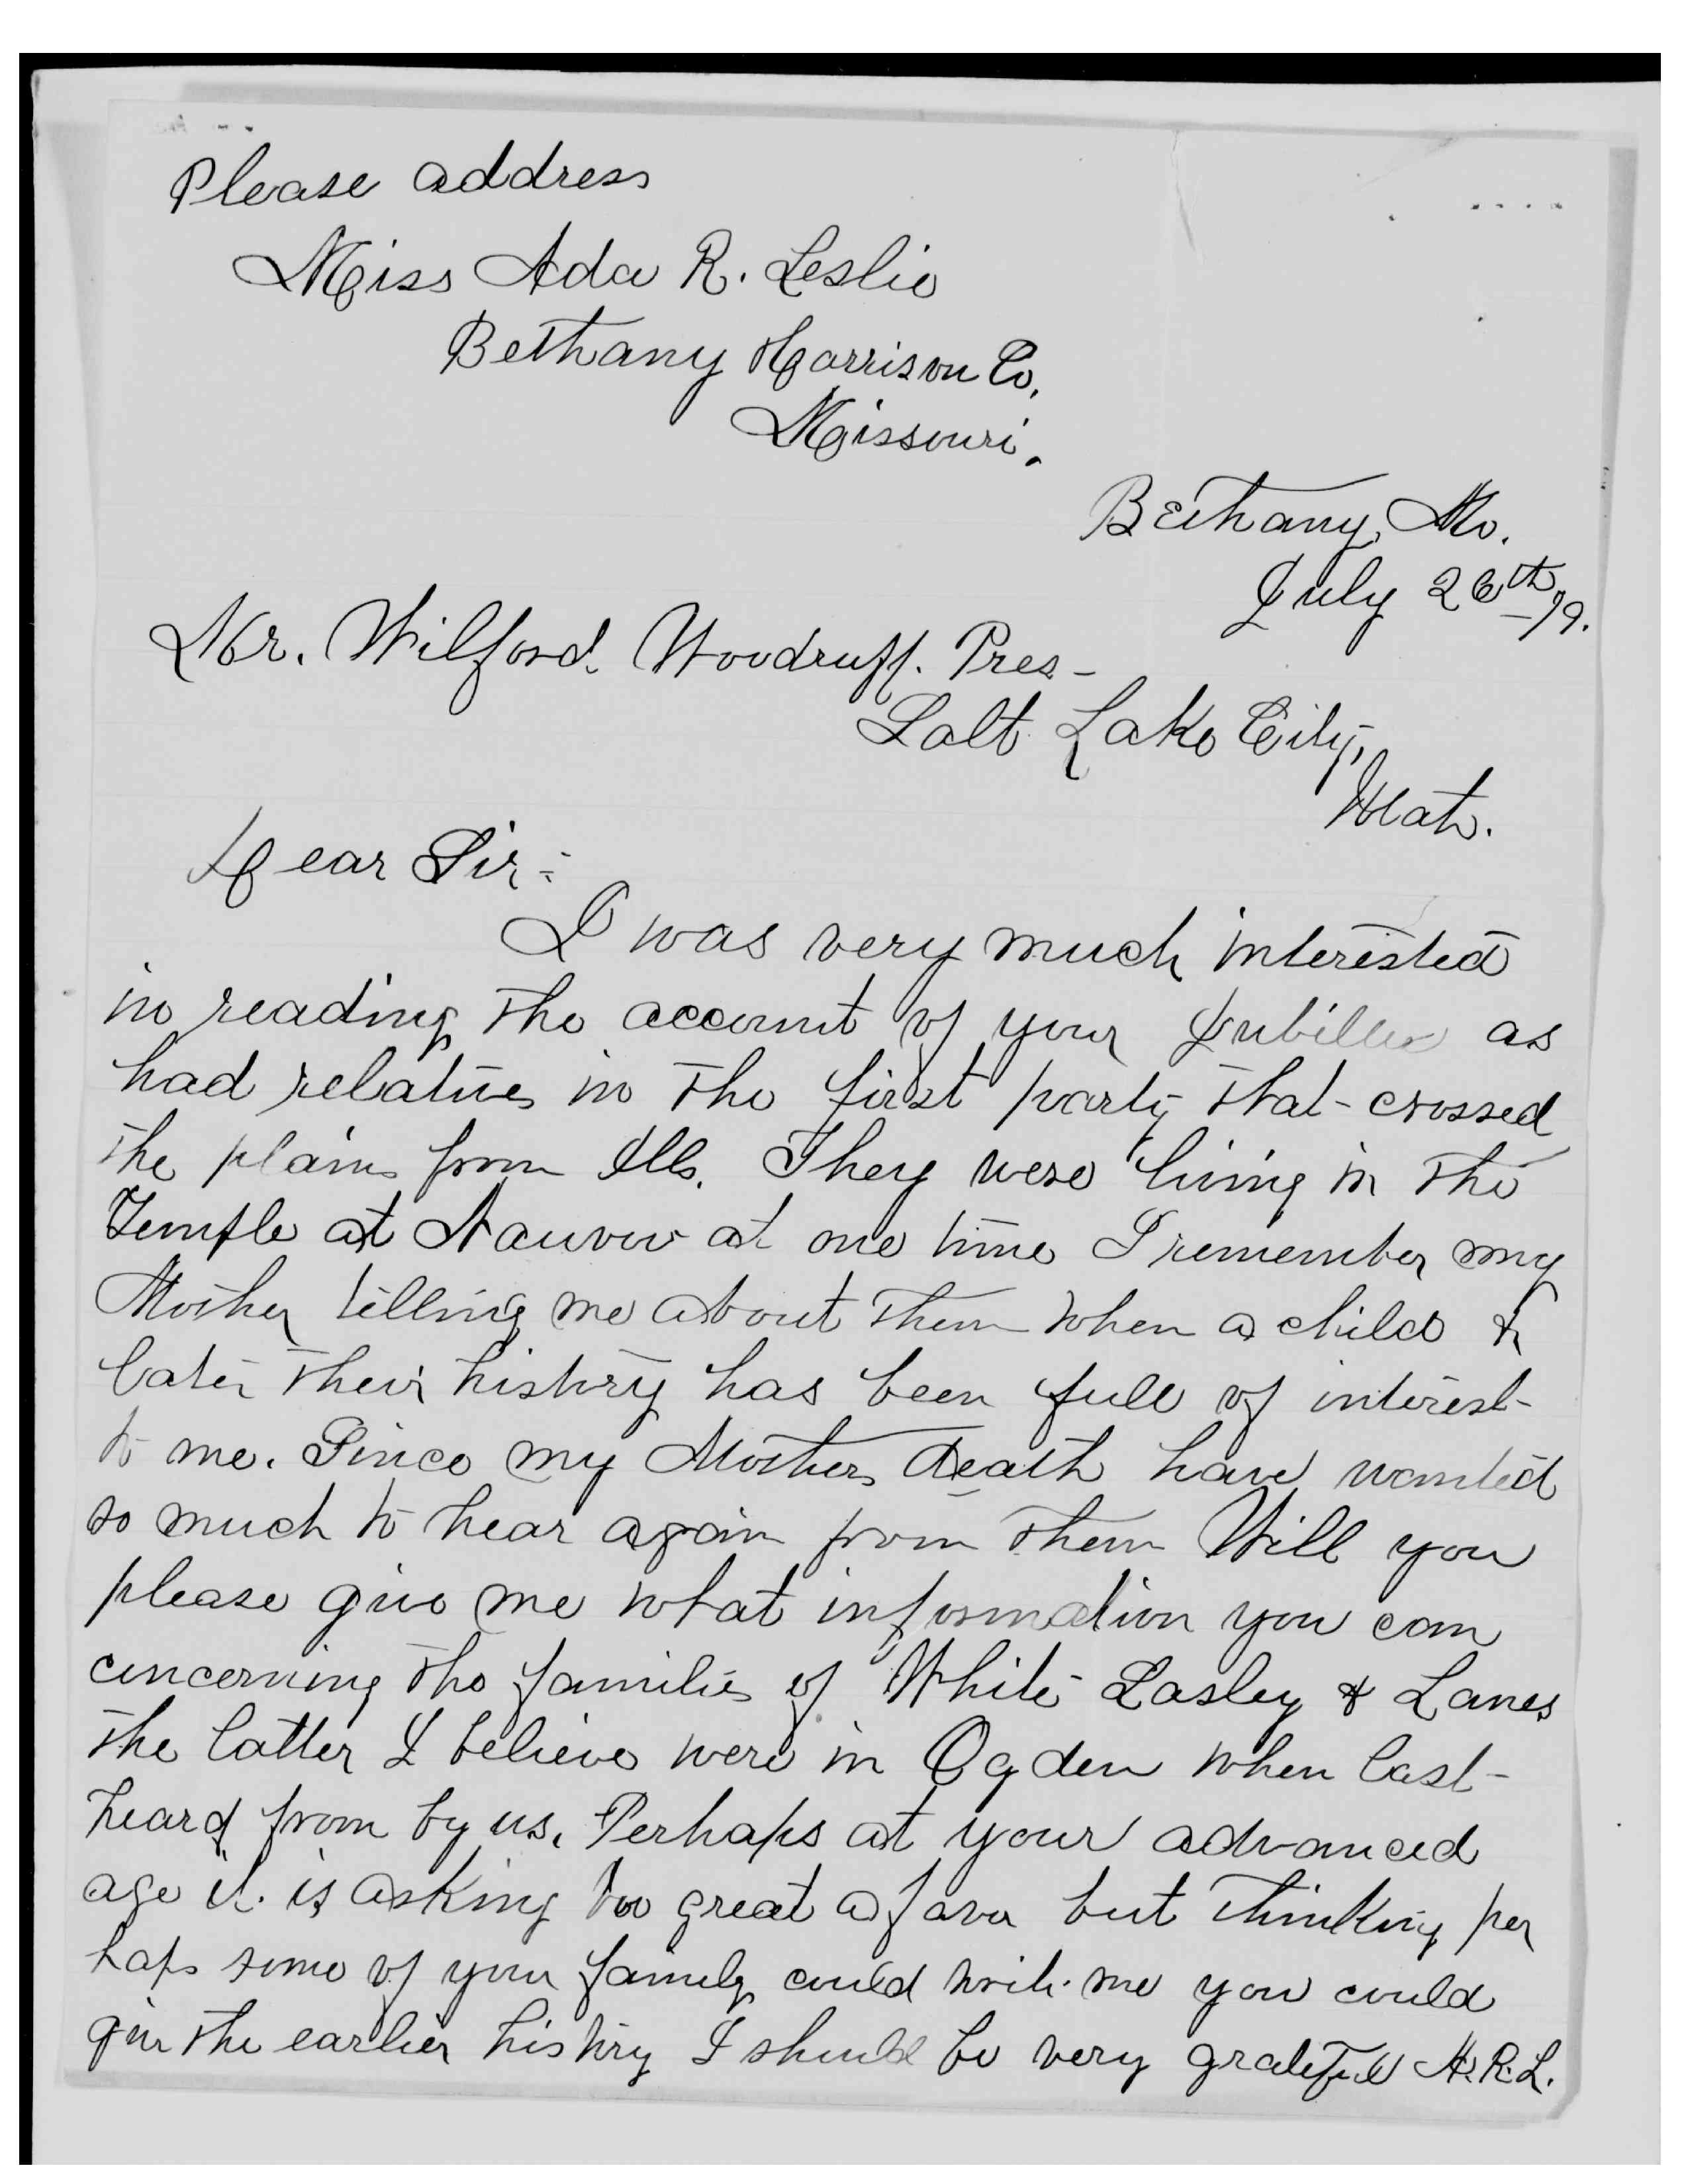 Please address
Miss Ada R. Leslie
Bethany Harrison Co.
Missouri.
Bethany, Mo.
July 26th
Mr. Wilford Woodruff. Pres-
Salt Lake City,
Utah.
Dear Sir:
I was very much interested
in reading the account of your Jubillee as
had relatives in the first party that crossed
the plains from Ills. They were living in the
Temple at Nauvoo at one time I remember my
Mother telling me about them when a child &
later their history has been full of interest
to me. Since my Mothers death have wanted
so much to hear again from them Will you
please give me what information you can
concerning the families of White Lasley & Lanes
the latter I believe were in Ogden when last
heard from by us. Perhaps at your advanced
age it is asking too great a favor but thinking per
haps some of your family could write me you could
give the earlier history I should be very grateful A.R.L.